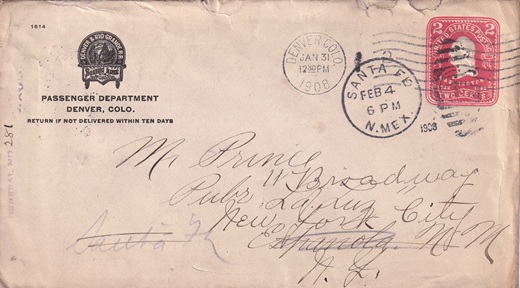 1614
DENVER & RIO GRANDE R.R.
PASSENGER DEPARTMENT
DENVER, COLO.
RETURN IF NOT DELIVERED WITHIN TEN DAYS
DENVER, COLO.
JAN 31
12 30 PM
1908
SANTA FE
FEB 4
6 PM
N. MEX.
1908
2 2
UNITED STATES POSTAGE
TWO CENTS
281
Mr Prince
11 Broadway
New York City
Santa Fe
Española N M
N. Y.